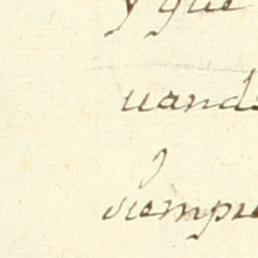 y que
uand
siempre